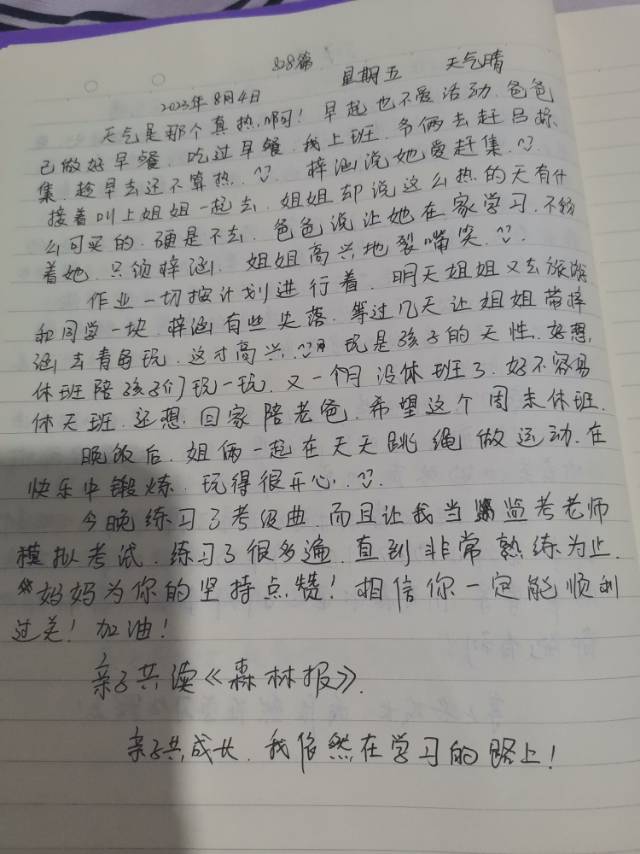 328篇
2023年8月4日 星期五 天气晴
天气是那个真热,啊!早起也不爱活动.爸爸
已做好早餐.吃过早餐.我上班.爷俩去赶吕标
集.趁早去还不算热.梓涵说她爱赶集.
接着叫上姐姐一起去.姐姐却说这么热的天有什
么可买的.硬是不去.爸爸说让她在家学习.不纷
着她.只领梓涵.姐姐高兴地裂嘴笑.
作业一切按计划进行着.明天姐姐又去旅游
和同学一块.梓涵有些失落.等过几天让姐姐带梓
涵去青岛玩.这才高兴.玩是孩子的天性.好想
休班陪孩子们玩一玩.又一个月没休班了.好不容易
休天班.还想回家陪老爸.希望这个周末休班.
晚饭后.姐俩一起在天天跳绳做运动.在
快乐中锻炼.玩得很开心.
今晚练习了考级曲.而且让我当监考老师
模拟考试.练习了很多遍.直到非常熟练为止.
妈妈为你的坚持点赞!相信你一定能顺利
过关!加油!
亲子共读《森林报》.
亲子共成长.我依然在学习的路上!